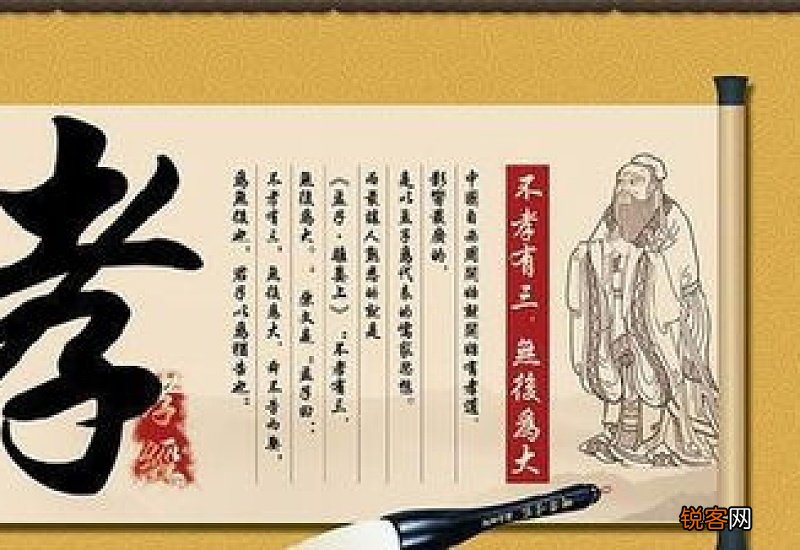 不孝有三,無後為大
中國自西周開始就開始有孝道,
影響最廣的,
是以孟子為代表的儒家思想。
而最讓人熟悉的就是
《孟子·離婁上》:不孝有三,
無後為大。。原文是:孟子曰:
不孝有三,無後為大,舜不告而娶,
為無後也,君子以為猶告也。
孝
孝經
锐客网